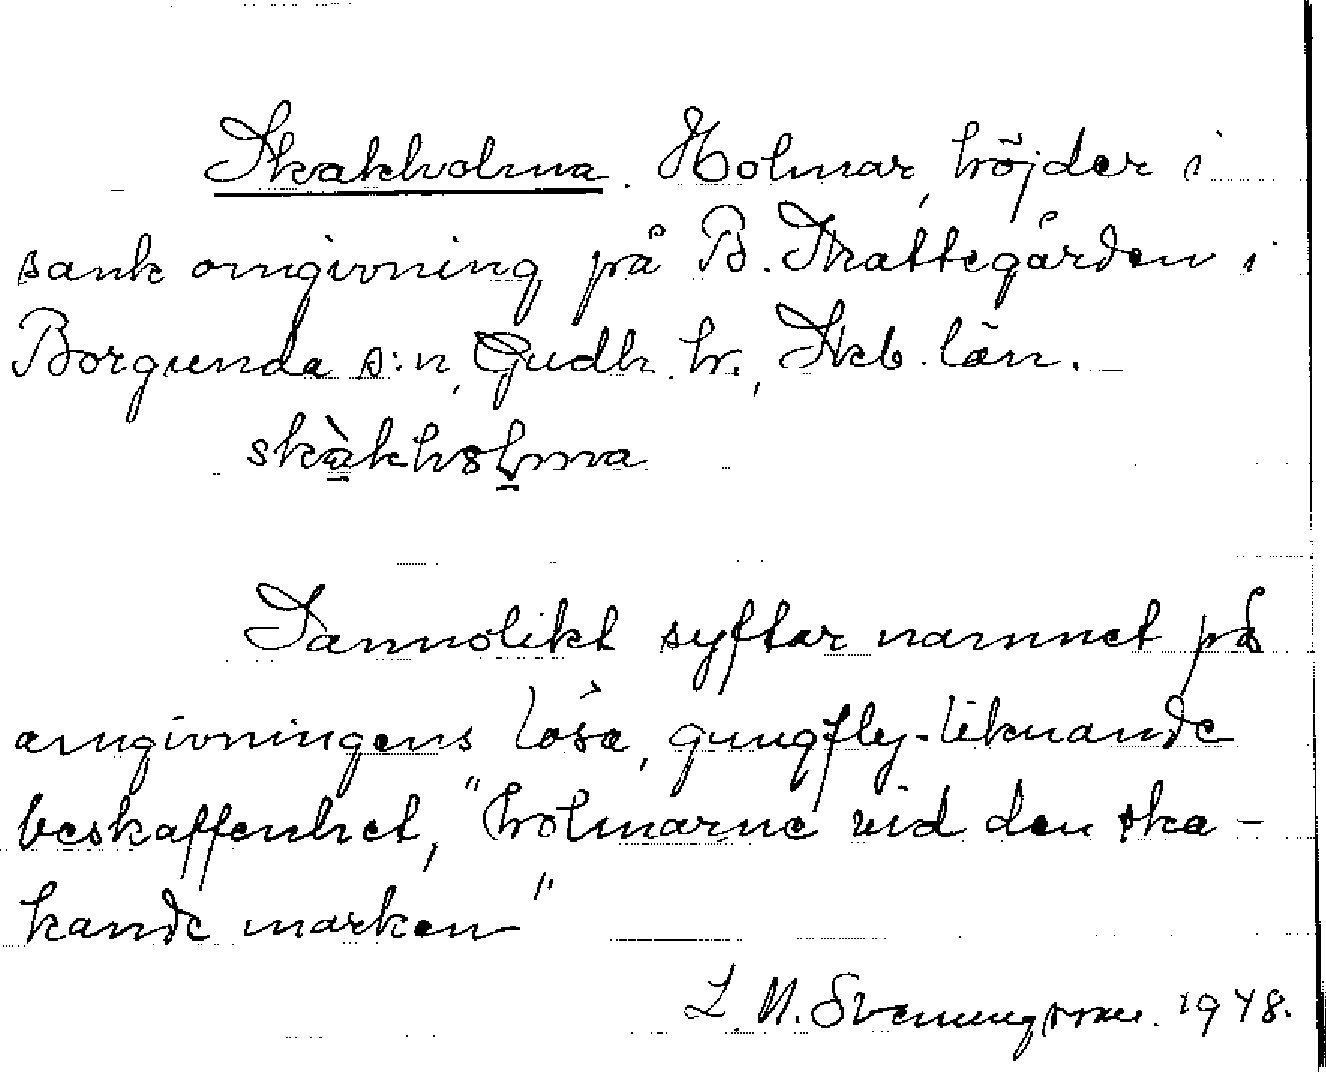 Skakholma. Holmar, höjder i
sank omgivning på B. Skattegården i
Borgunda s:n, Gudh. hr., Skb. län.
skàkhɷlma
Sannolikt syftar namnet på
omgivningens lösa, gungfly-liknande
beskaffenhet, "holmarne vid den ska-
kande marken"
L. N. Svenungsson. 1948.